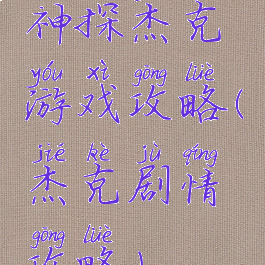 神探杰克
yóu xì gōng lüè
游戏攻略(
jié kè jù qíng
杰克剧情
gōng lüè
攻略)